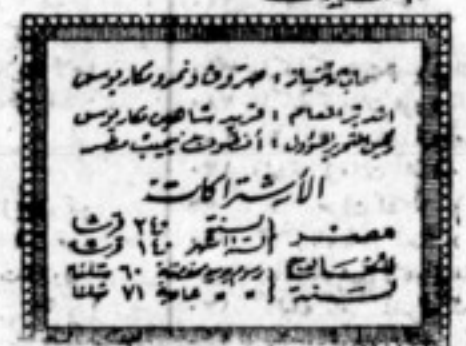 أصحاب الامتياز : صروف ونمر ومكاريوس
المدير العام : فريد شاهين مكاريوس
رئيس التحرير المسؤول : أنطون نجيب مطر
الاشتراكات
مصر لسنة ٢٤٠ قرشا
لستة اشهر ١٤٠ قرشا
للخارج رسوم بريد مخفضة ٦٠ شلنا
لسنة » » عادية ٧١ شلنا